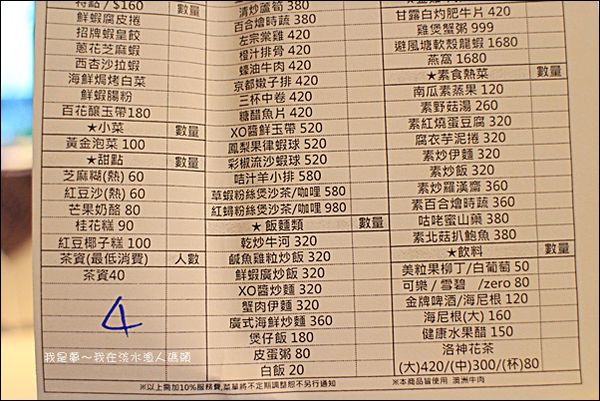 特點 / $160 數量
鮮蝦腐皮捲
招牌蝦皇餃
蔥花芝麻蝦
西杏沙拉蝦
海鮮焗烤白菜
鮮蝦腸粉
百花釀玉帶180
★小菜 數量
黃金泡菜 100
★甜點 數量
芝麻糊(熱) 60
紅豆沙(熱) 60
芒果奶酪 80
桂花糕 90
紅豆椰子糕 100
茶資(最低消費) 人數
茶資40
4
清炒蘆筍 380
百合燴時蔬 380
左宗棠雞 420
橙汁排骨 420
蠔油牛肉 420
京都嫩子排 420
三杯中卷 420
糖醋魚片 420
XO醬鮮玉帶 520
鳳梨果律蝦球 520
彩椒流沙蝦球 520
咭汁羊小排 580
草蝦粉絲煲沙茶/咖哩 580
紅蟳粉絲煲沙茶/咖哩 980
★飯麵類 數量
乾炒牛河 320
鹹魚雞粒炒飯 320
鮮蝦廣炒飯 320
XO醬炒麵 320
蟹肉伊麵 320
廣式海鮮炒麵 360
煲仔飯 180
皮蛋粥 80
白飯 20
甘露白灼肥牛片 420
雞煲蟹粥 999
避風塘軟殼龍蝦 1680
燕窩 1680
★素食熱菜 數量
南瓜素蒸果 120
素野菇湯 260
素紅燒蛋豆腐 320
腐衣芋泥捲 320
素炒伊麵 320
素炒飯 320
素炒羅漢齋 360
素百合燴時蔬 360
咕咾蜜山藥 380
素北菇扒鮑魚 380
★飲料 數量
美粒果柳丁/白葡萄 50
可樂 / 雪碧 /zero 80
金牌啤酒/海尼根 120
海尼根(大) 160
健康水果醋 150
洛神花茶
(大)420/(中)300/(杯)80
※以上需加10%服務費,菜單將不定期調整恕不另行通知
※本商品皆使用 澳洲牛肉
我是夢～我在淡水漁人碼頭